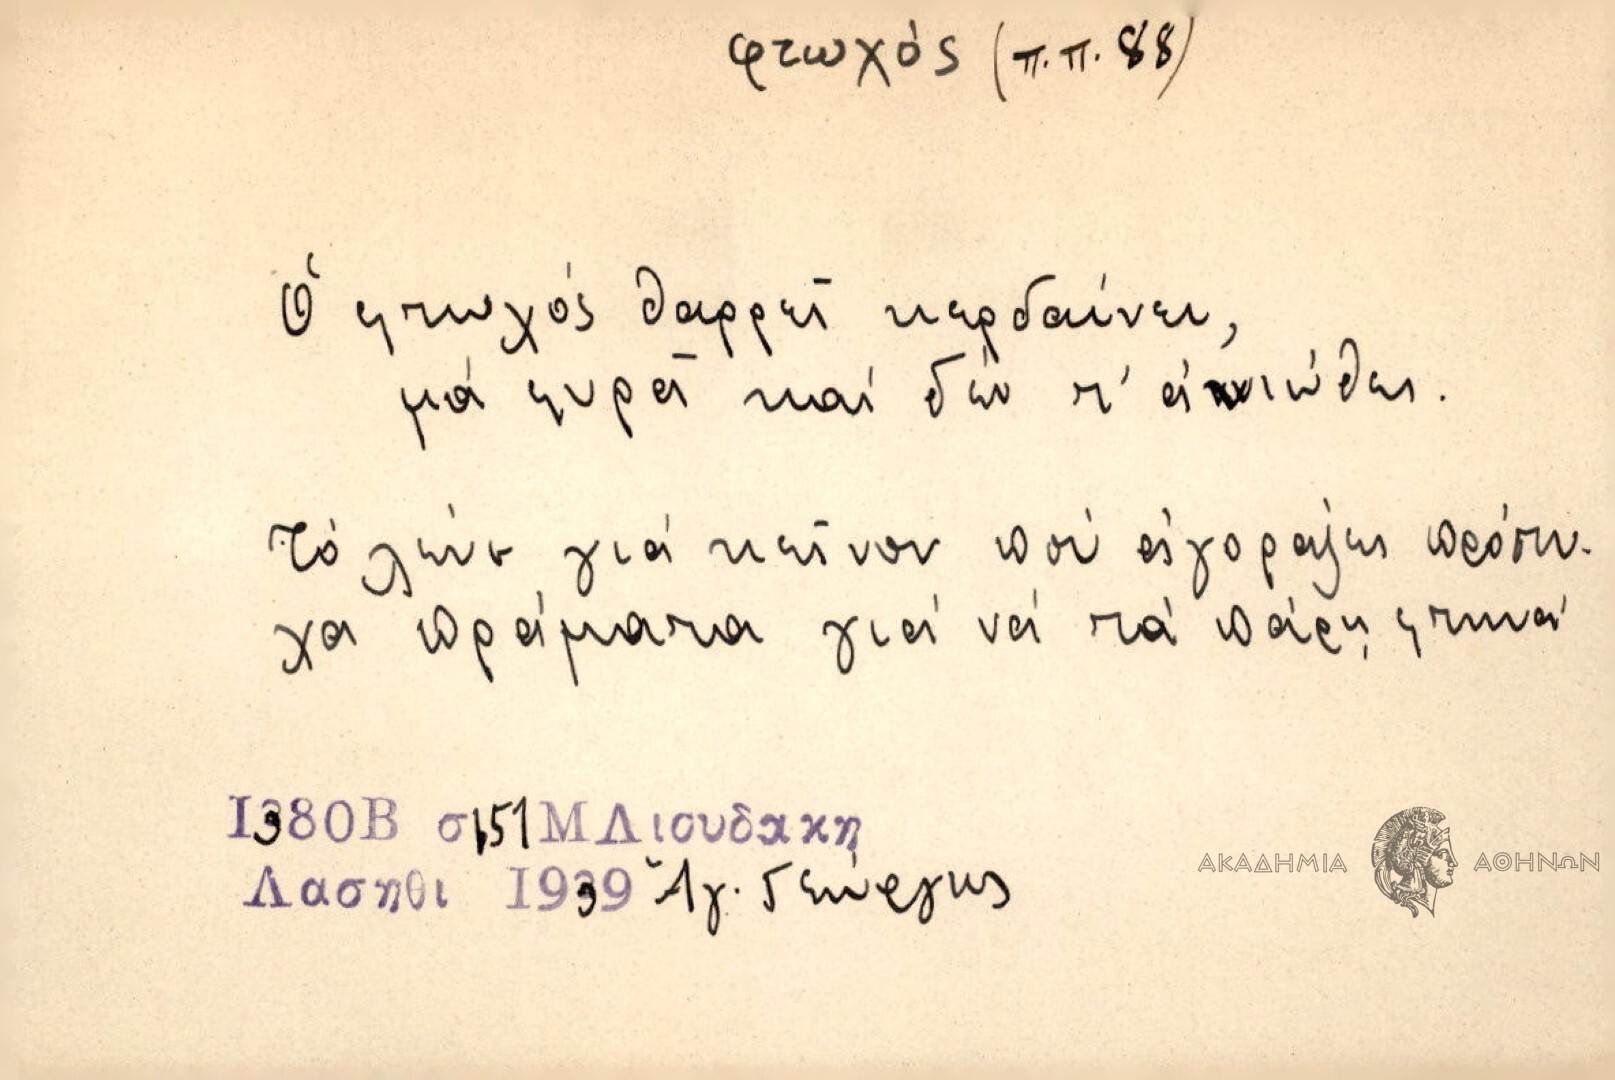 φτωχός (π.π. 88)
Ὁ φτωχός θαρρεῖ κερδαίνει,
μά φυρᾶ καί δέν τ' ἀνιώθει.
Τό λένε γιά κεῖνον πού ἀγοράζει πρόστυ-
χα πράματα γιά νά τά πάρῃ φτηνά
1380Β σ151 Μ Λιουδακη
Λασηθι 1939 Ἅγ. Γεώργιος
ΑΚΑΔΗΜΙΑ ΑΘΗΝΩΝ